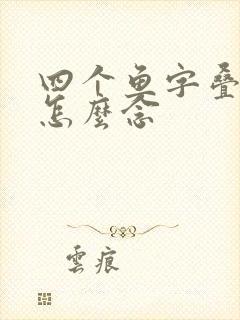 四个鱼字叠
怎麼念
雲痕